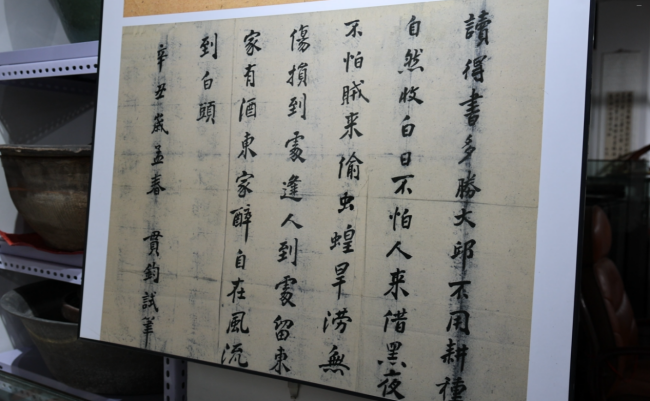 讀得書多勝大邱不用耕種
自然收白日不怕人來借黑夜
不怕賊來偷虫蝗旱澇無
傷損到處逢人到處留東
家有酒東家醉自在風流
到白頭
辛丑歲孟春 貫鈞試筆